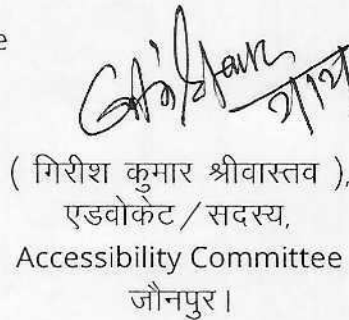 e
( गिरीश कुमार श्रीवास्तव ),
एडवोकेट / सदस्य,
Accessibility Committee
जौनपुर।